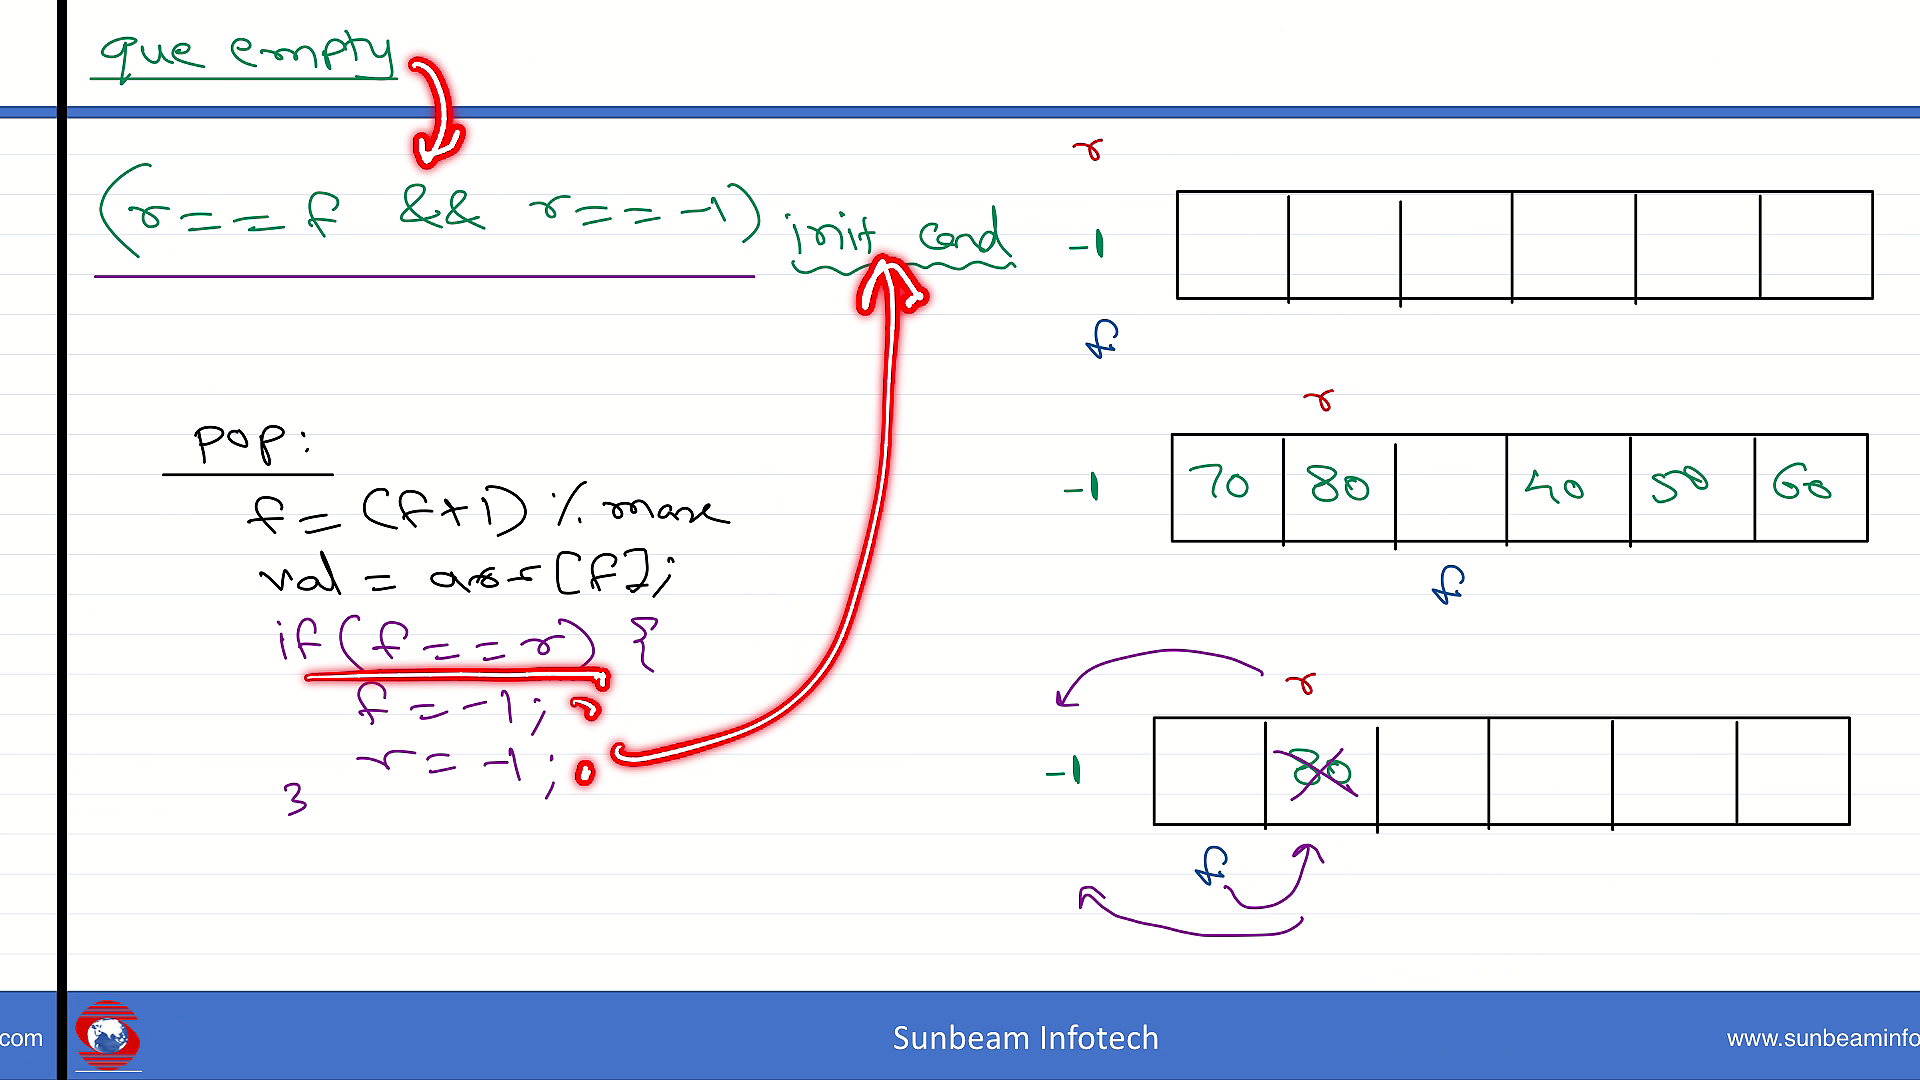 que empty
(r == f && r == -1) init cond
r
-1
f
pop:
f = (f+1) % max
val = arr[f];
if (f == r) {
f = -1;
r = -1;
}
r
-1 70 80 40 50 60
f
r
-1 80
f
.com
Sunbeam Infotech
www.sunbeaminfo